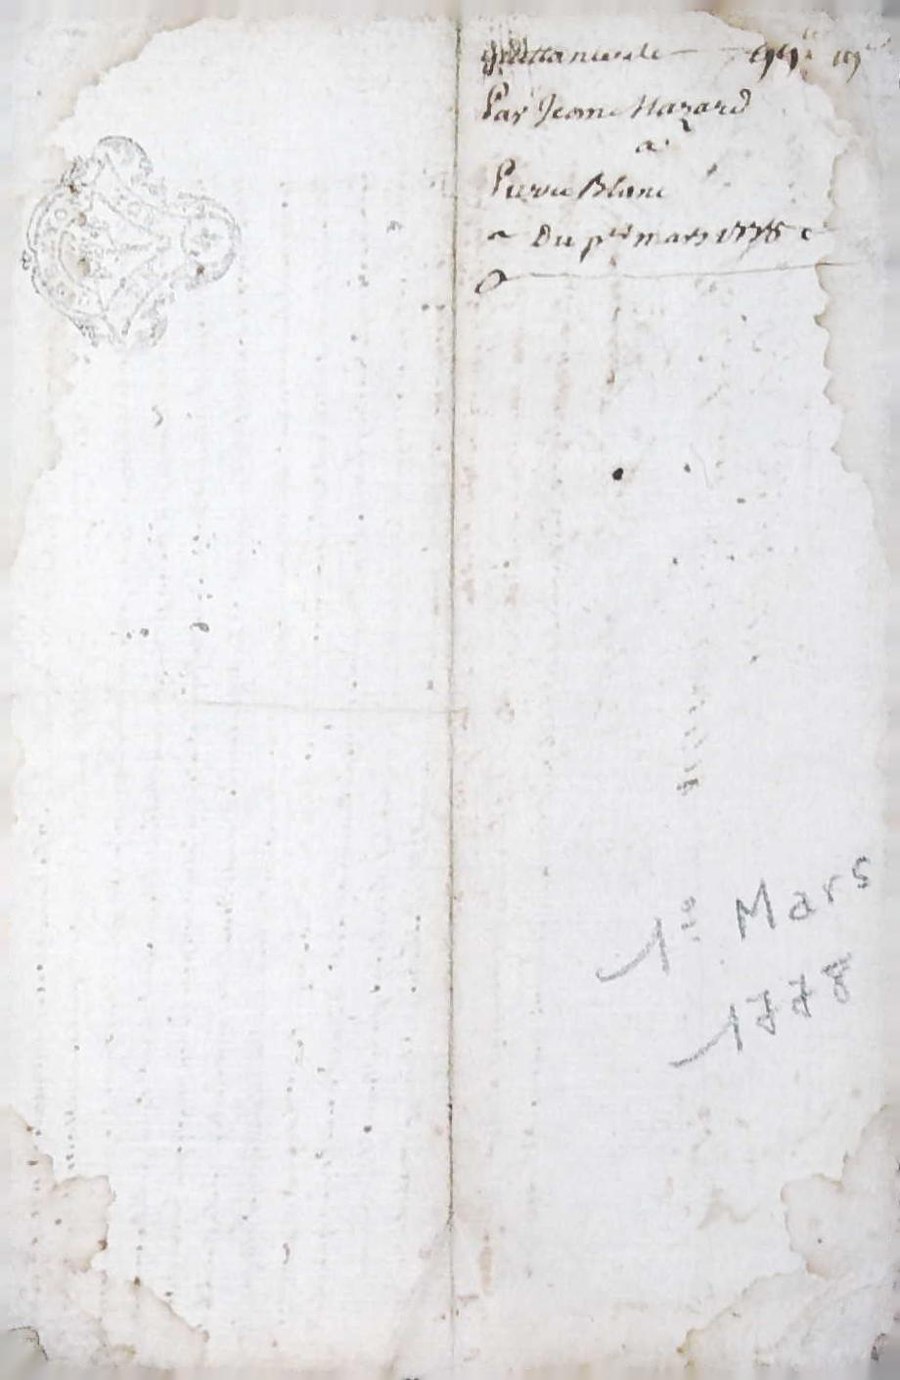 quittance de
Par Jeanne Mazard
a
Pierre Blanc
Du p.er mars 1778
1e Mars
1778